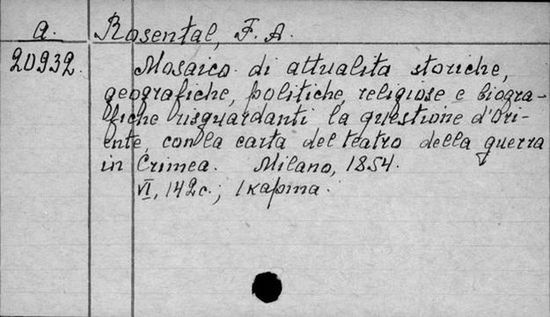 a. Rosental, F. A.
20932. Mosaico di attualita storiche,
geografiche, politiche, religiose e biogra-
fiche risguardanti la questione d'Ori-
ente, con la carta del teatro della guerra
in Crimea. Milano, 1854.
VI, 142 с.; 1 карта.